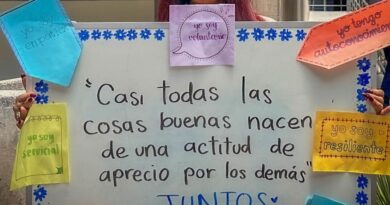 yo soy
voluntaria
yo tengo
autoconocimiento
"Casi todas las
cosas buenas nacen
de una actitud de
aprecio por los demás"
JUNTOS
yo soy
servicial
yo soy
resiliente